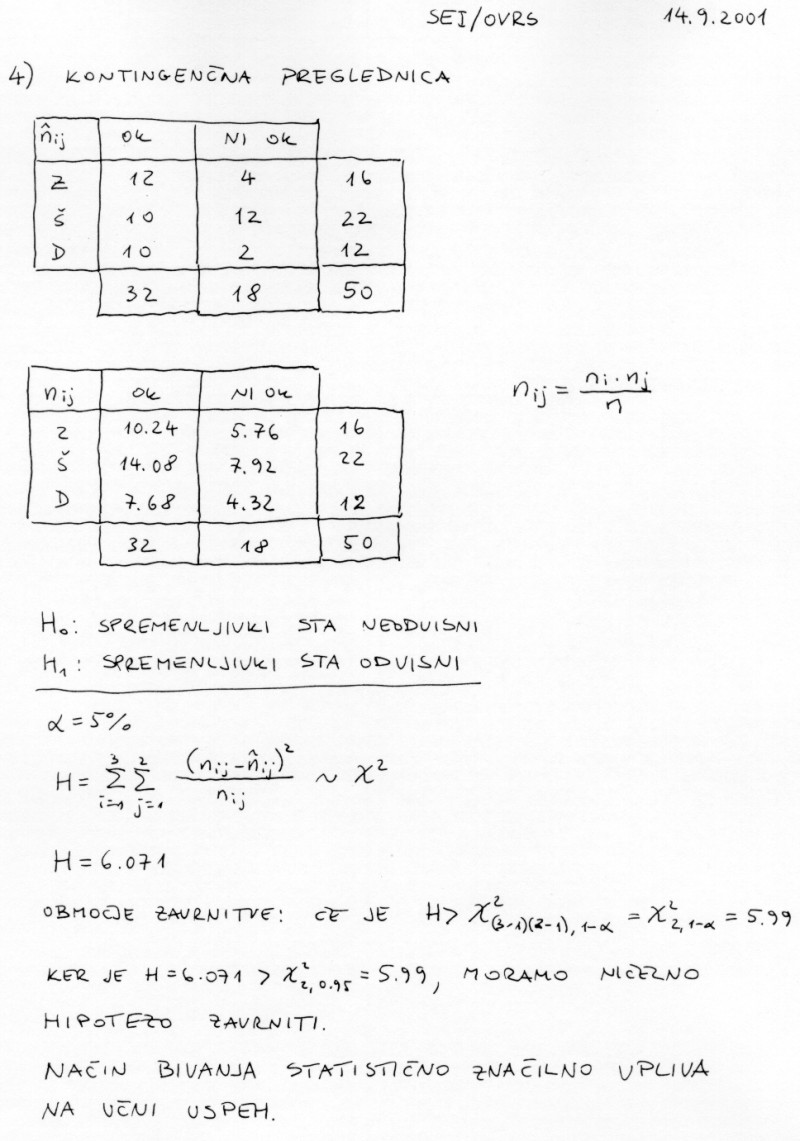 SEI/OVRS 14.9.2001
4) KONTINGENČNA PREGLEDNICA
n̂ij OK NI OK
Z 12 4 16
Š 10 12 22
D 10 2 12
32 18 50
nij OK NI OK
Z 10.24 5.76 16
Š 14.08 7.92 22
D 7.68 4.32 12
32 18 50
nij = ni·nj / n
H₀: SPREMENLJIVKI STA NEODVISNI
H₁: SPREMENLJIVKI STA ODVISNI
α = 5%
H = Σ(i=1..3) Σ(j=1..2) (nij - n̂ij)² / nij ~ χ²
H = 6.071
OBMOČJE ZAVRNITVE: ČE JE H > χ²(3-1)(2-1), 1-α = χ²2, 1-α = 5.99
KER JE H = 6.071 > χ²2, 0.95 = 5.99, MORAMO NIČELNO
HIPOTEZO ZAVRNITI.
NAČIN BIVANJA STATISTIČNO ZNAČILNO VPLIVA
NA UČNI USPEH.